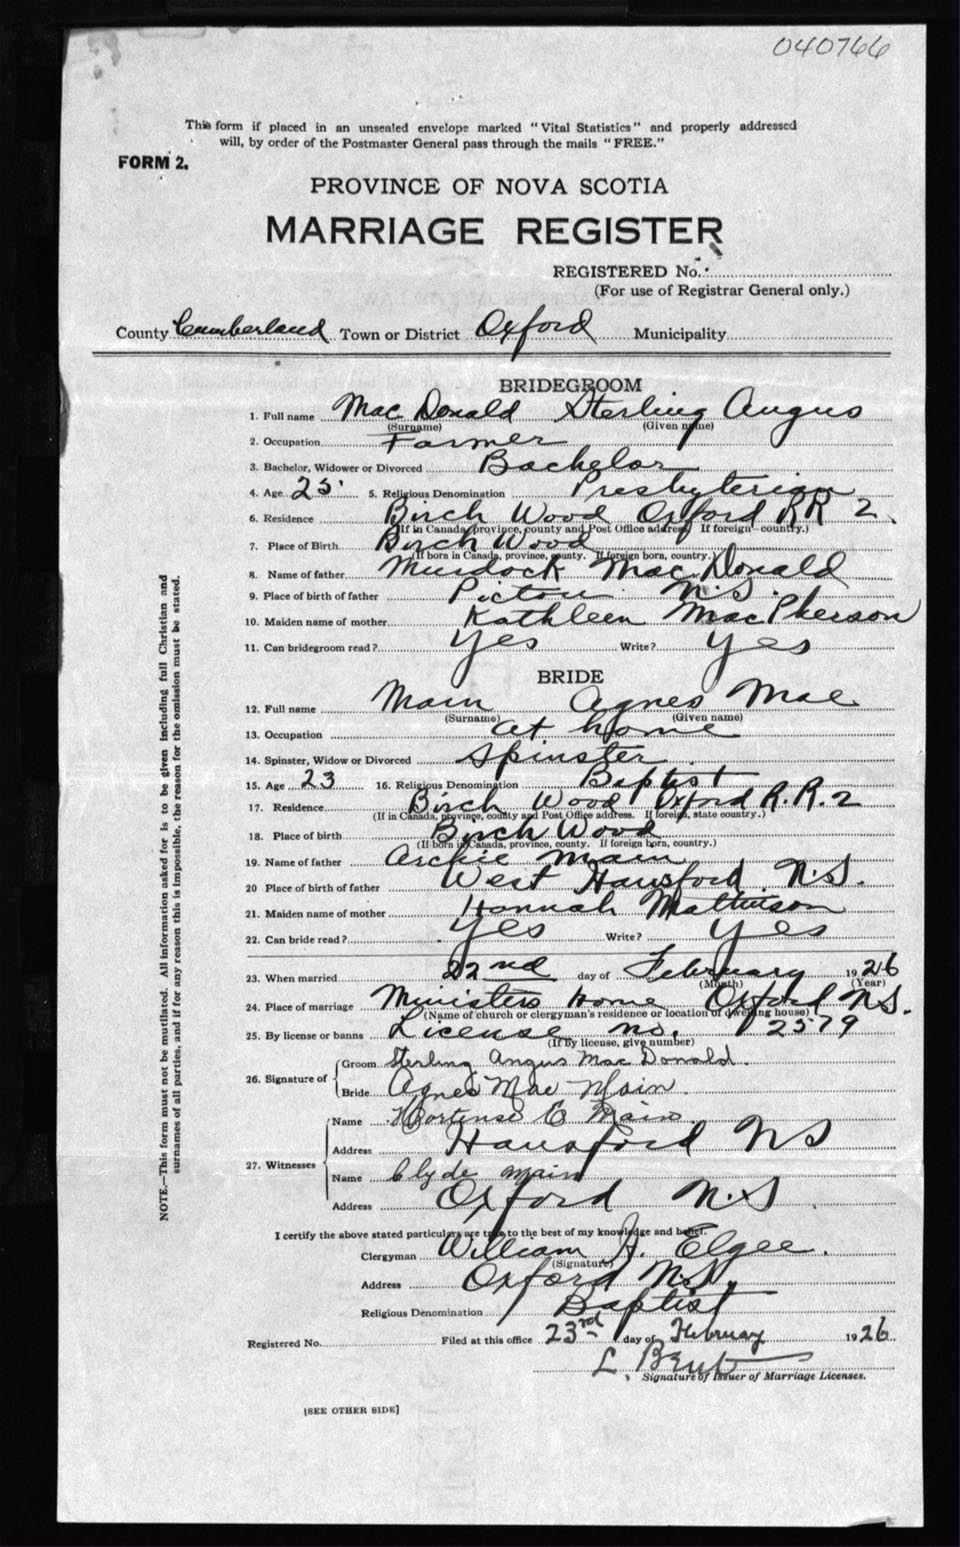 040766
This form if placed in an unsealed envelope marked "Vital Statistics" and properly addressed
will, by order of the Postmaster General pass through the mails "FREE."
FORM 2.
PROVINCE OF NOVA SCOTIA
MARRIAGE REGISTER
REGISTERED No.
(For use of Registrar General only.)
County Cumberland Town or District Oxford Municipality
BRIDEGROOM
1. Full name Mac Donald Sterling Angus
(Surname) (Given name)
2. Occupation Farmer
3. Bachelor, Widower or Divorced Bachelor
4. Age 25 5. Religious Denomination Presbyterian
6. Residence Birch Wood Oxford RR 2.
(If in Canada, province, county and Post Office address. If foreign country.)
7. Place of Birth Birch Wood
(If born in Canada, province, county. If foreign born, country.)
8. Name of father Murdock MacDonald
9. Place of birth of father Pictou N.S.
10. Maiden name of mother Kathleen MacPherson
11. Can bridegroom read? Yes Write? Yes
BRIDE
12. Full name Main Agnes Mae
(Surname) (Given name)
13. Occupation at home
14. Spinster, Widow or Divorced Spinster
15. Age 23 16. Religious Denomination Baptist
17. Residence Birch Wood Oxford R.R.2
(If in Canada, province, county and Post Office address. If foreign, state country.)
18. Place of birth Birch Wood
(If born in Canada, province, county. If foreign born, country.)
19. Name of father Archie Main
20 Place of birth of father West Hansford N.S.
21. Maiden name of mother Hannah Mathieson
22. Can bride read? Yes Write? Yes
23. When married 22nd day of February 1926
(Month) (Year)
24. Place of marriage Ministers home Oxford N.S.
(Name of church or clergyman's residence or location of dwelling house)
25. By license or banns License no. 12579
(If by license, give number)
26. Signature of
Groom Sterling Angus MacDonald.
Bride Agnes Mae Main
27. Witnesses
Name Hortense E Main
Address Hansford NS
Name Clyde Main
Address Oxford N.S
I certify the above stated particulars are true to the best of my knowledge and belief.
Clergyman William A. Elgee.
(Signature)
Address Oxford N.S.
Religious Denomination Baptist
Registered No. Filed at this office 23rd day of February 1926
L. Bent
Signature of Issuer of Marriage Licenses.
[SEE OTHER SIDE]
NOTE.—This form must not be mutilated. All information asked for is to be given including full Christian and
surnames of all parties, and if for any reason this is impossible, the reason for the omission must be stated.